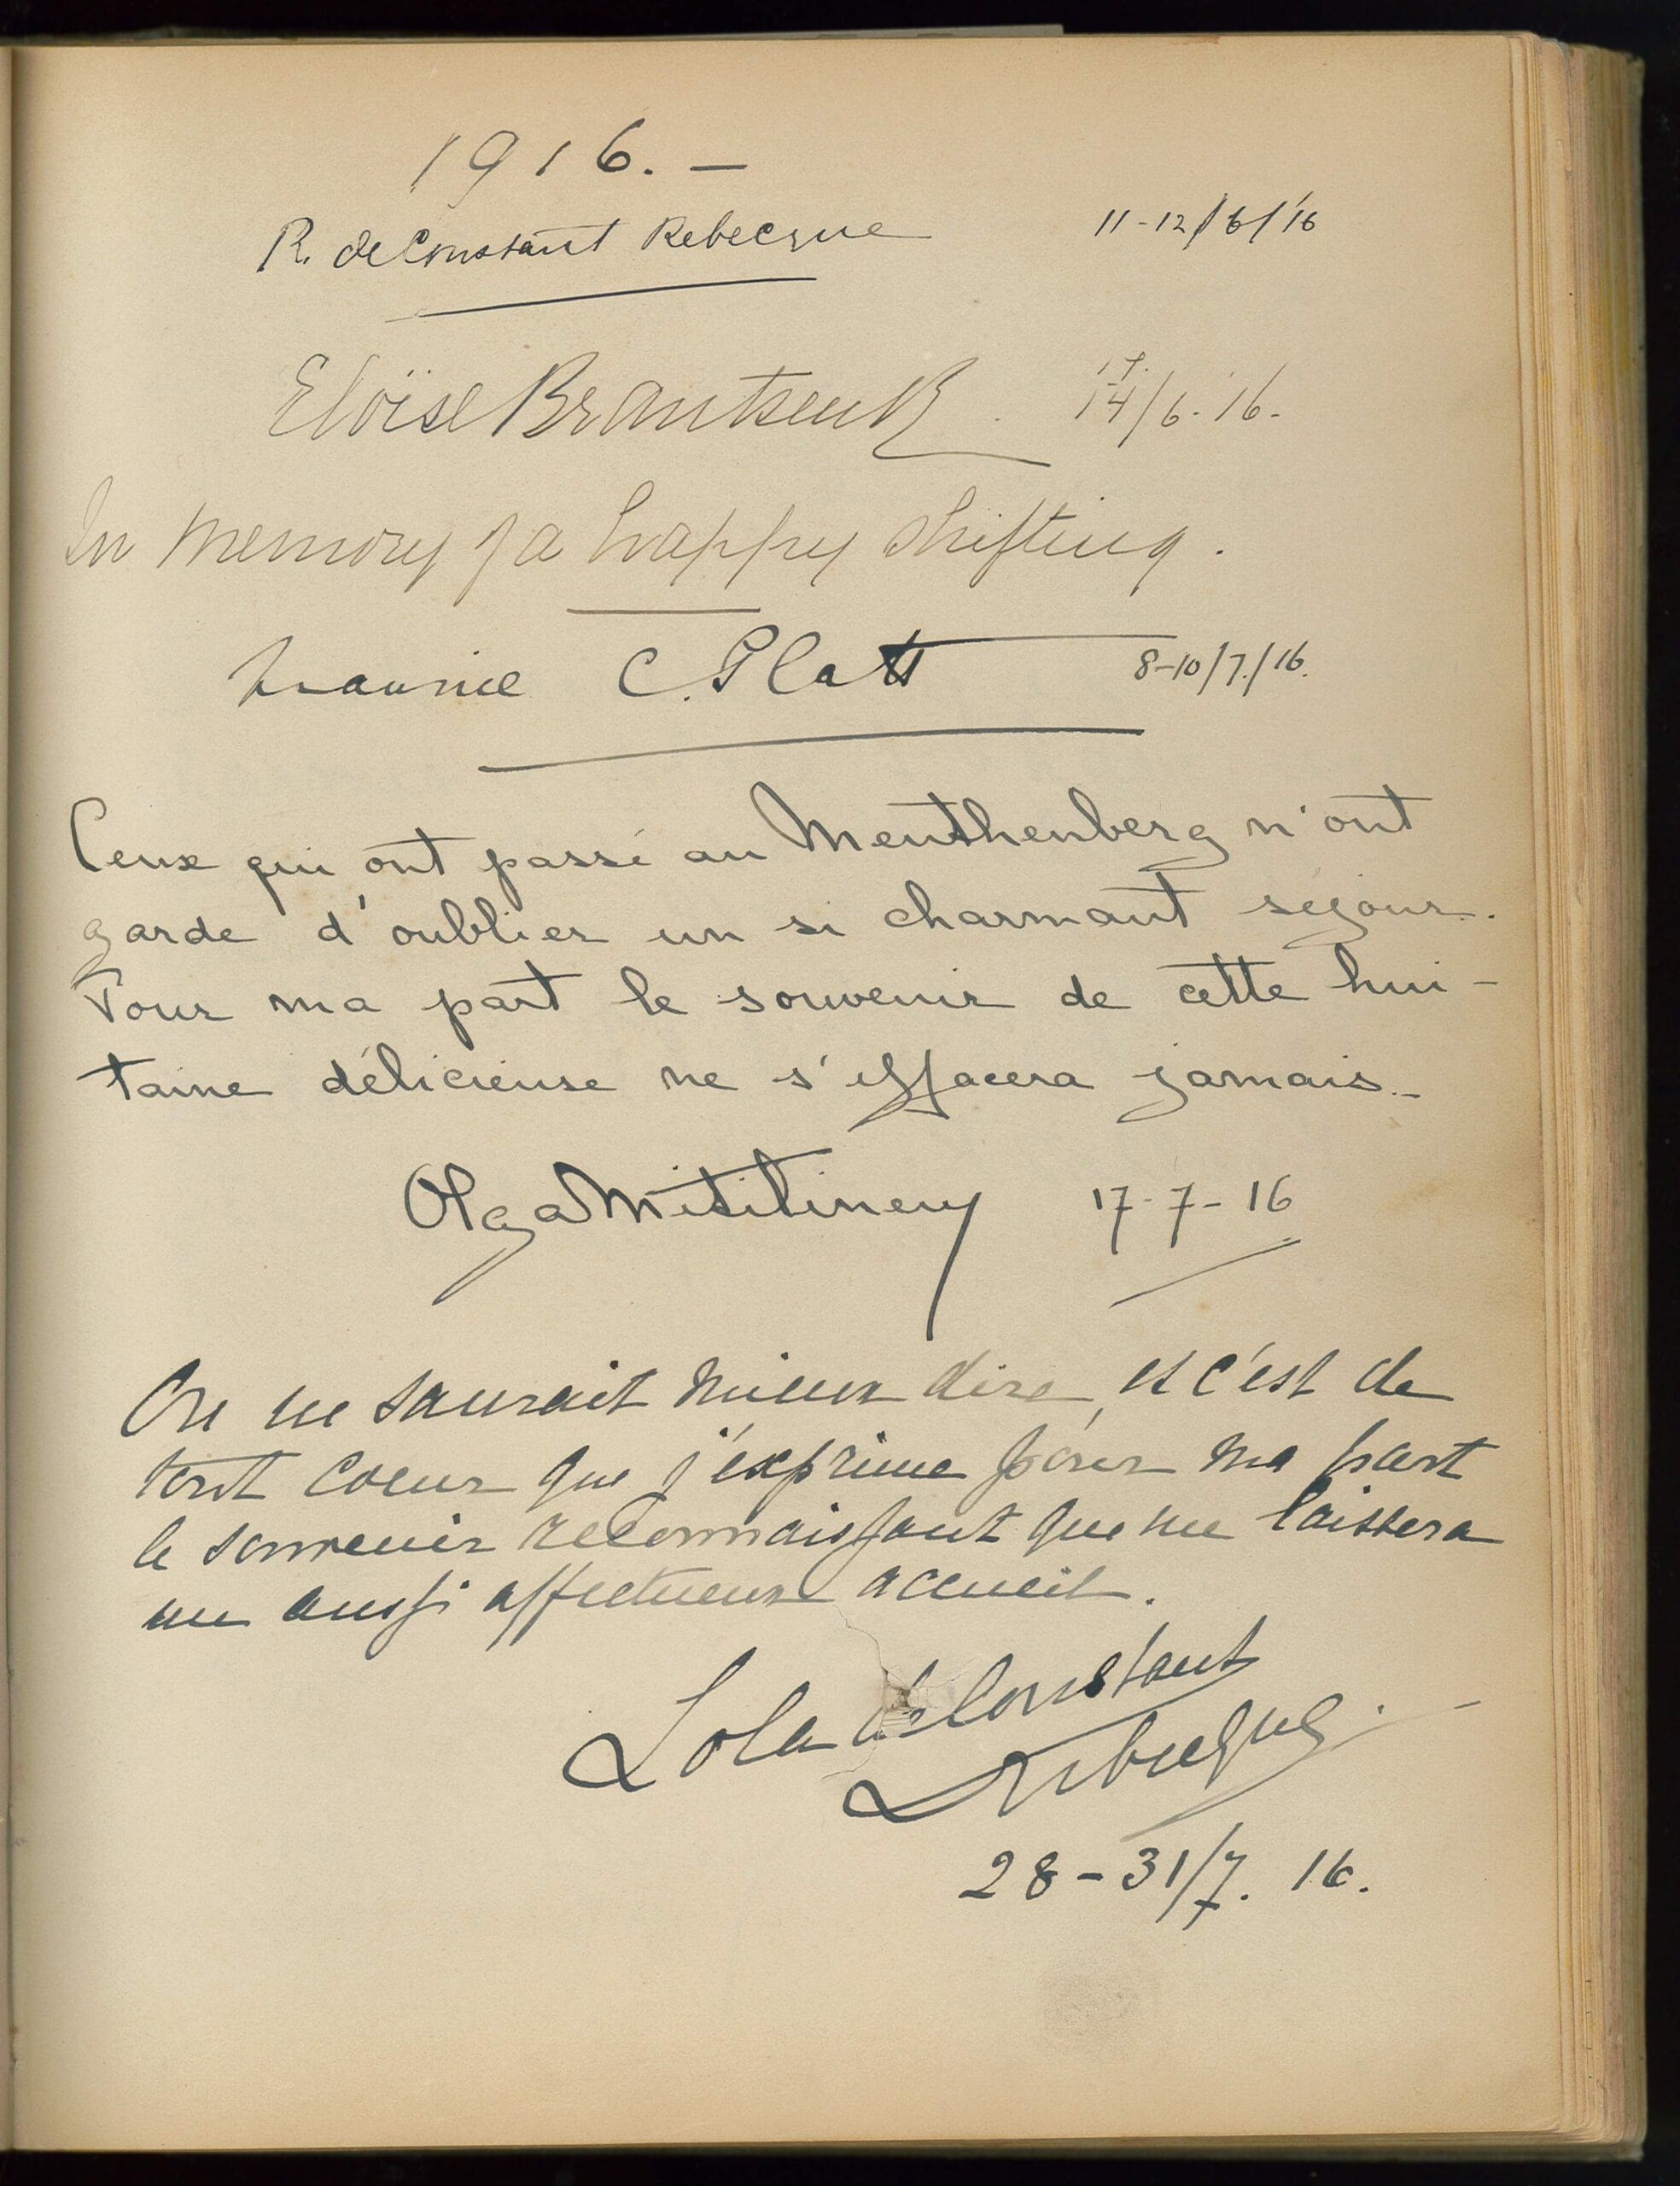 1916. —
R. de Constant Rebecque 11-12/6/'16
Eloïse Brantsen R 14/6.'16.
In memory of a happy shifting.
Maurice C. Platt 8-10/7./16.
Ceux qui ont passé au Menthenberg n'ont
garde d'oublier un si charmant séjour.
Pour ma part le souvenir de cette hui-
taine délicieuse ne s'effacera jamais.
Olga 17-7-16
On ne saurait mieux dire, et c'est de
tout coeur que j'exprime pour ma part
le souvenir reconnaissant que me laissera
un aussi affectueux accueil.
Lola de Constant
Rebecque.
28-31/7. 16.